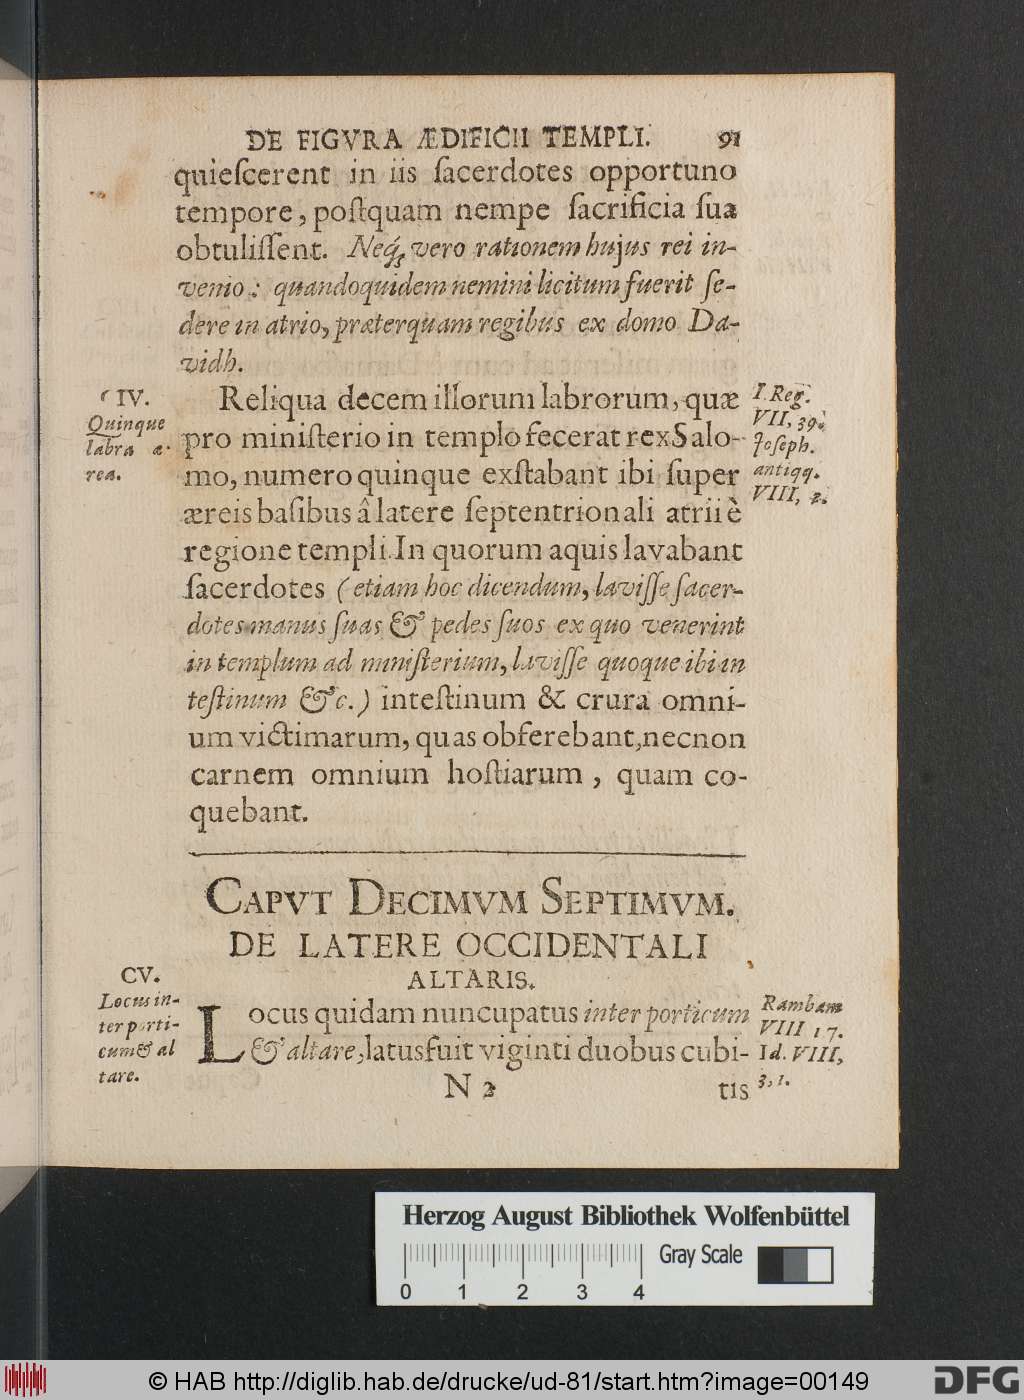 DE FIGVRA ÆDIFICII TEMPLI. 91
quieſcerent in iis ſacerdotes opportuno
tempore, poſtquam nempe ſacrificia ſua
obtuliſſent. Neq́; vero rationem hujus rei in-
venio: quandoquidem nemini licitum fuerit ſe-
dere in atrio, præterquam regibus ex domo Da-
vidh.
IV.
Quinque
labra æ-
rea.
Reliqua decem illorum labrorum, quæ
pro miniſterio in templo fecerat rex Salo-
mo, numero quinque exſtabant ibi ſuper
æreis baſibus â latere ſeptentrionali atrii è
regione templi. In quorum aquis lavabant
ſacerdotes (etiam hoc dicendum, laviſſe ſacer-
dotes manus ſuas & pedes ſuos ex quo venerint
in templum ad miniſterium, laviſſe quoque ibi in
teſtinum &c.) inteſtinum & crura omni-
um victimarum, quas obferebant, necnon
carnem omnium hoſtiarum, quam co-
quebant.
I. Reg.
VII, 39.
Joſeph.
antiqq.
VIII, 2.
CAPVT DECIMVM SEPTIMVM.
DE LATERE OCCIDENTALI
ALTARIS.
CV.
Locus in-
ter porti-
cum & al
tare.
Locus quidam nuncupatus inter porticum
& altare, latus fuit viginti duobus cubi-
Rambam
VIII 17.
Id. VIII,
3, 1.
N 2 tis
Herzog August Bibliothek Wolfenbüttel
Gray Scale
0 1 2 3 4
© HAB http://diglib.hab.de/drucke/ud-81/start.htm?image=00149
DFG